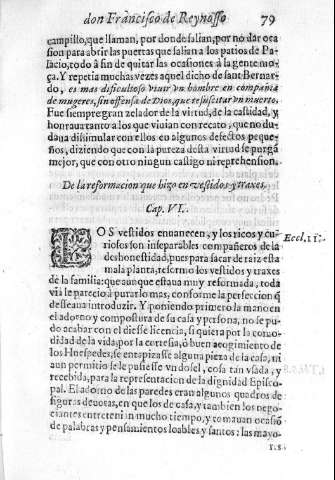 don Francisco de Reynosso 79
campillo, que llaman, por donde salian, por no dar oca
sion para abrir las puertas que salian a los patios de Pa-
lacio, todo à fin de quitar las ocasiones à la gente mo-
ça. Y repetia muchas vezes aquel dicho de sant Bernar-
do, es mas dificultoso viuir vn hombre en compañia
de mugeres, sin offensa de Dios, que resuscitar vn muerto.
Fue siempre gran zelador de la virtud, de la castidad, y
honraua tanto a los que viuian con recato, que no du-
daua dissimular con ellos en algunos defectos peque-
ños, diziendo que con la pureza desta virtud se purgà
mejor, que con otro ningun castigo ni reprehension.
De la reformacion que hizo en vestidos y traxes.
Cap. VI.
LOS vestidos enuanecen, y los ricos y cu-
riosos son inseparables compañeros de la
deshonestidad, pues para sacar de raiz esta
mala planta, reformo los vestidos y traxes
de la familia: que aunque estaua muy reformada, toda
via le parecio à purarlo mas, conforme la perfeccion q̃
desseaua introduzir. Y poniendo primero la mano en
el adorno y compostura de su casa y persona, no se pu-
do acabar con el diesse licencia, si quiera por la comodidad
de la vida, por la cortesia, ò buen acogimiento de
los Huespedes, se entapizasse alguna pieza de la casa, ni
aun permitio se le pusiesse vn dosel, cosa tan vsada, y
recebida, para la representacion de la dignidad Episco-
pal. El adorno de las paredes eran algunos quadros de
figuras deuotas, en que los de casa, y tambien los nego-
ciantes entretenian mucho tiempo, y tomauan ocasiõ
de palabras y pensamientos loables y santos: las mayo-
Eccl. 11.